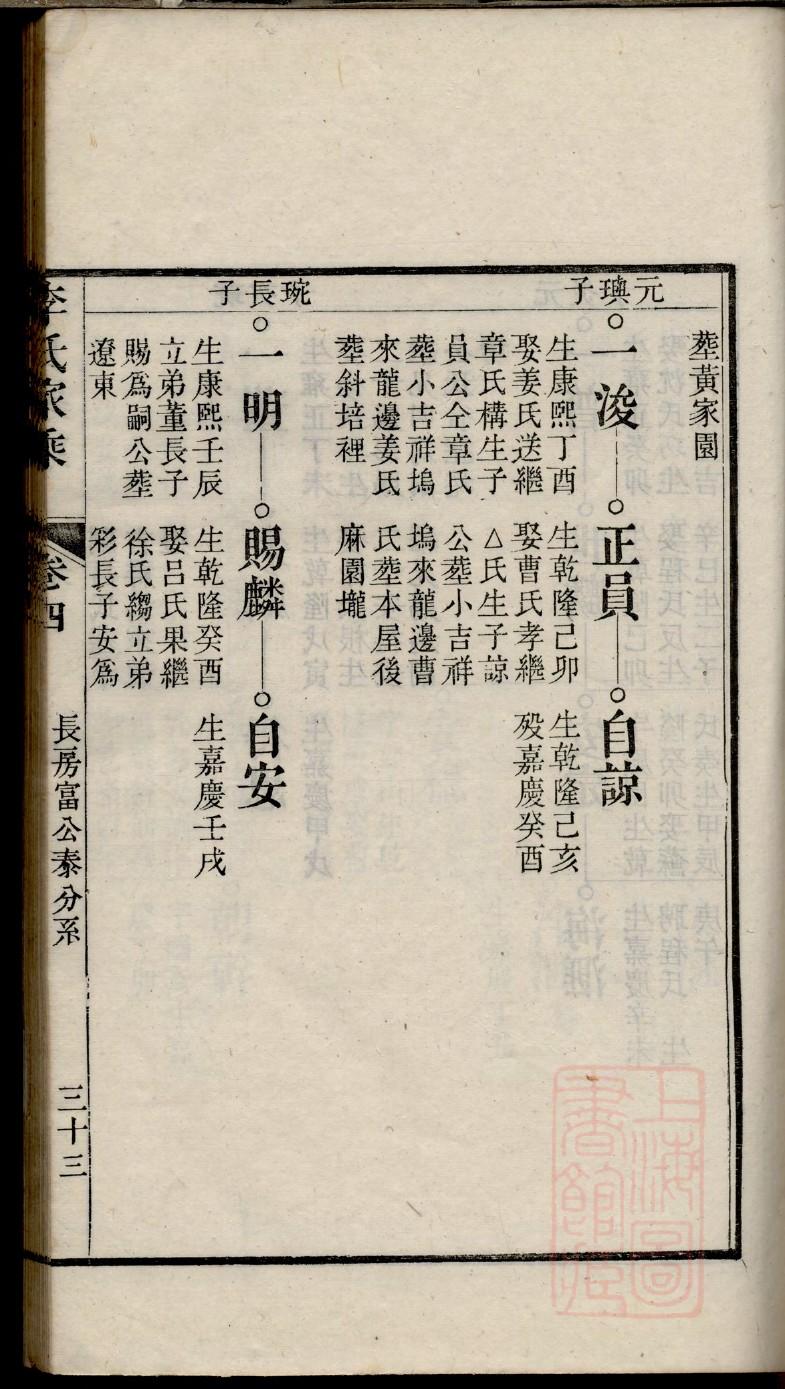 葬黃家園
元璵子
一浚
生康熙丁酉
娶姜氏送繼
章氏構生子
員公仝章氏
葬小吉祥塢
來龍邊姜氏
葬斜培裡
正員
生乾隆己卯
娶曹氏孝繼
△氏生子諒
公葬小吉祥
塢來龍邊曹
氏葬本屋後
麻園壠
自諒
生乾隆己亥
歿嘉慶癸酉
琬長子
一明
生康熙壬辰
立弟董長子
賜爲嗣公葬
遼東
賜麟
生乾隆癸酉
娶呂氏果繼
徐氏縐立弟
彩長子安爲
自安
生嘉慶壬戌
李氏家乘
卷四
長房富公泰分系
三十三
上海圖書館藏